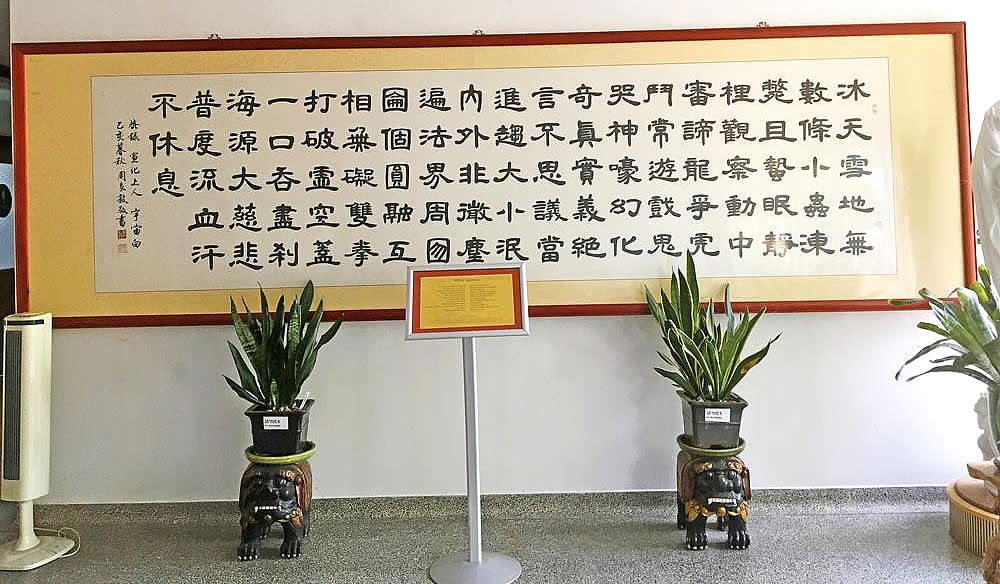 冰天雪地無
數條小蟲凍
斃且蟄眠靜
裡觀察動中
審諦龍爭虎
鬥常遊戲鬼
哭神嚎幻化
奇真實義絕
言不思議當
進趨大小泯
內外非微塵
遍法界周囫
圇個圓融互
相無礙雙拳
打破虛空蓋
一口吞盡剎
海源大慈悲
普度流血汗
不休息
恭錄 宣化上人 宇宙白
乙亥暮秋 周良敬書